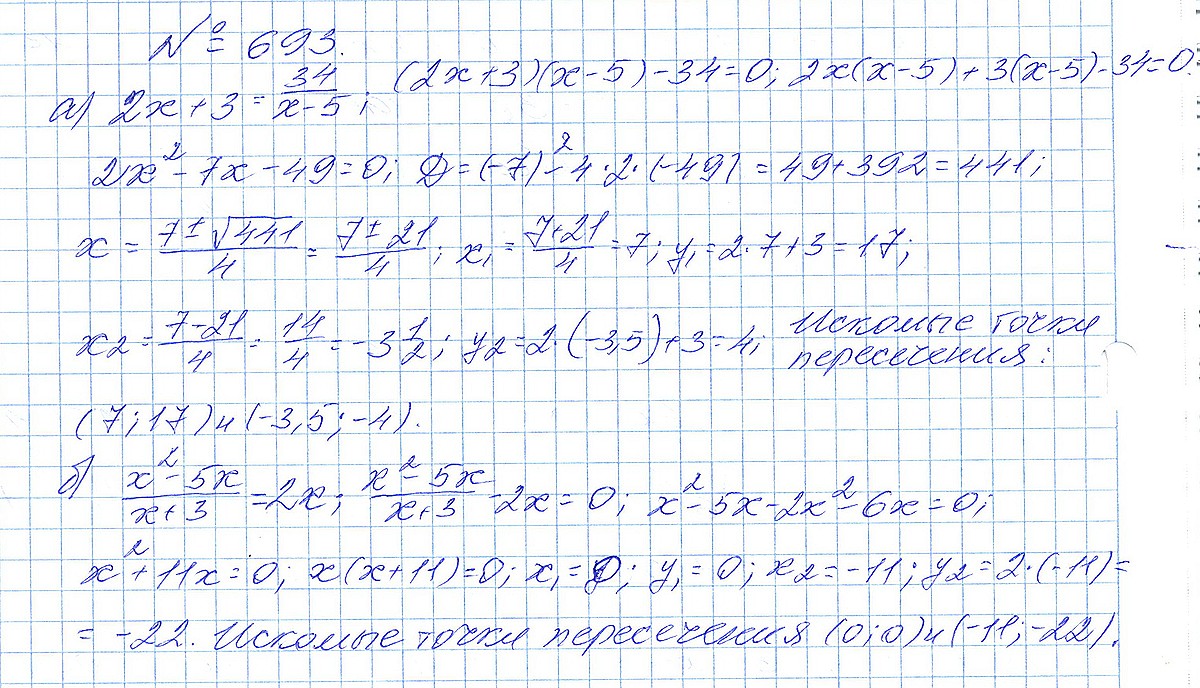 № 693.
а) 2x + 3 = 34/(x-5); (2x+3)(x-5)-34=0; 2x(x-5)+3(x-5)-34=0
2x² - 7x - 49 = 0; D = (-7)² - 4·2·(-49) = 49+392 = 441;
x = (7±√441)/4 = (7±21)/4; x₁ = (7+21)/4 = 7; y₁ = 2·7+3 = 17;
x₂ = (7-21)/4 = 14/4 = -3 1/2; y₂ = 2·(-3,5)+3 = 4; Искомые точки
пересечения:
(7;17) и (-3,5;-4).
б) (x²-5x)/(x+3) = 2x; (x²-5x)/(x+3) - 2x = 0; x²-5x-2x²-6x=0;
x²+11x=0; x(x+11)=0; x₁=0; y₁=0; x₂=-11; y₂=2·(-11)=
= -22. Искомые точки пересечения (0;0) и (-11;-22).